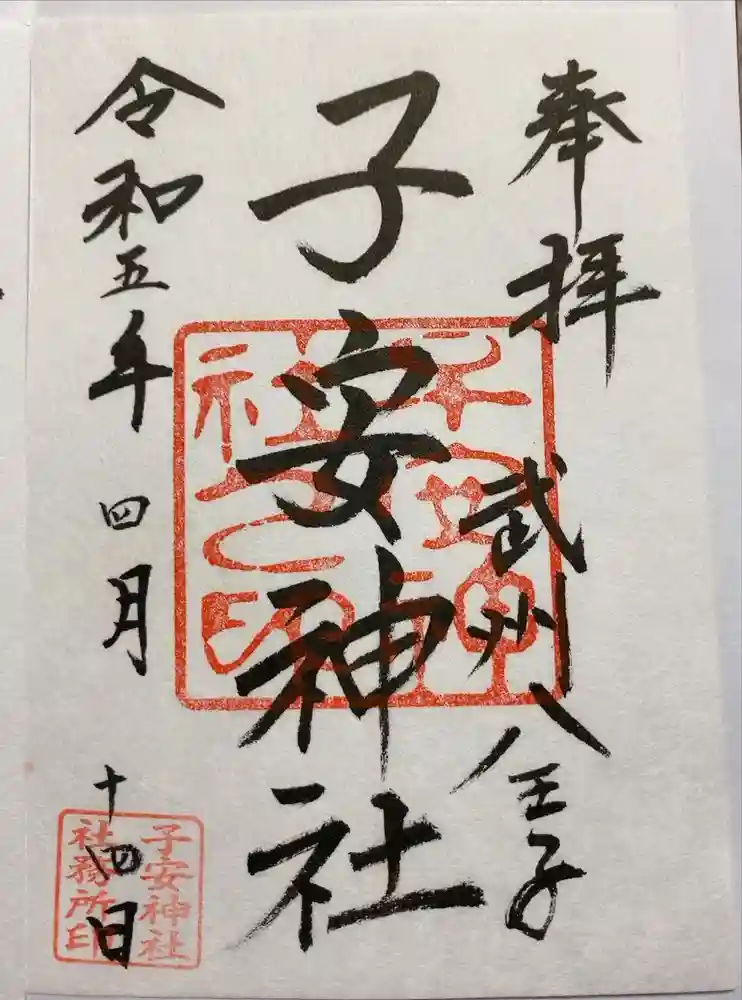 奉拝
武州八王子
子安神社
令和五年四月十四日
子安神社
社務所印